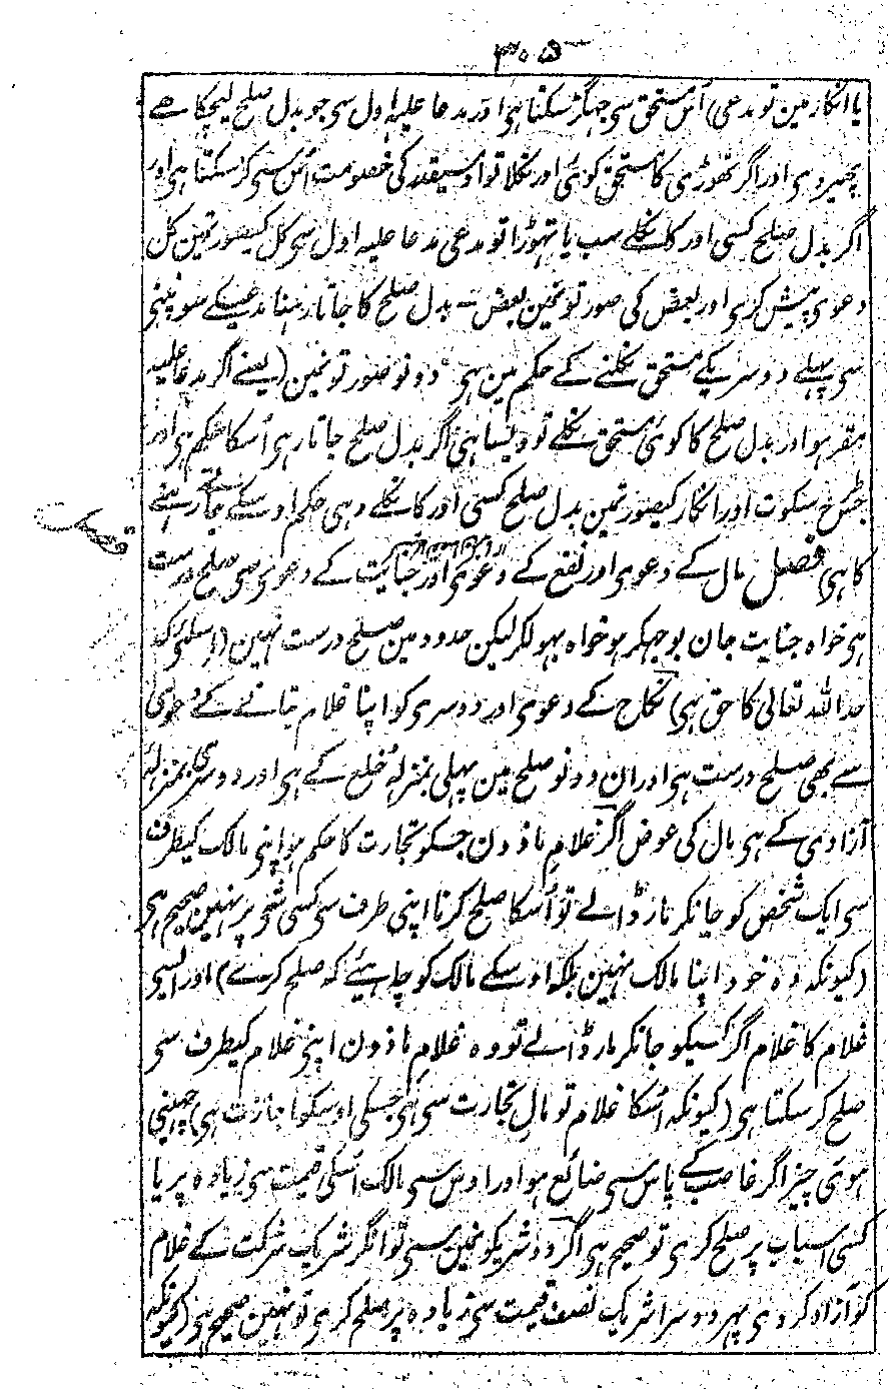 ۳۰۵
یا انکار مین تو مدعی) اُس مستحق سی جہگڑ سکتا ہی اور مدعا علیہ اول سی جو بدل صلح لیچکا ہے
پھیر دی اور اگر تھوڑی کا مستحق کوئی اور نکلا تو اوسیقدر کی خصومت اُس سی کر سکتا ہی اور
اگر بدل صلح کسی اور کا نکلے سب یا تہوڑا تو مدعی مدعا علیہ اول سی کل کیصورتمین کل
دعوی پیش کری اور بعض کی صورتونمین بعض ــ بدل صلح کا جاتا رہنا مدعیکے سونپنی
سی پہلے دوسریکے مستحق نکلنے کے حکم مین ہی دونو صورتونمین (یعنے اگر مدعا علیہ
مقر ہو اور بدل صلح کا کوئی مستحق نکلے تو ویسا ہی اگر بدل صلح جاتا رہی اُسکا حکم ہی اور
جسطرح سکوت اور انکار کیصورتمین بدل صلح کسی اور کا نکلے وہی حکم اوسکے جاتے رہنے
کا ہی) فصل مال کے دعوی اور نفع کے دعوی اور جنایت کے دعوی سی صلح درست
ہی خواہ جنایت جان بوجہکر ہو خواہ بہولکر لیکن حدود مین صلح درست نہین (اسلئے کہ
حد اللہ تعالی کا حق ہی) نکاح کے دعوی اور دوسری کو اپنا غلام بتانے کے دعوی
سے بھی صلح درست ہی اور ان دونو صلح مین پہلی بمنزلہ خلع کے ہی اور دوسری بمنزلہ
آزادی کے ہی مال کی عوض اگر غلام ماذون جسکو تجارت کا حکم ہو اپنی مالک کیطرف
سی ایک شخص کو جانکر مار ڈالے تو اُسکا صلح کرنا اپنی طرف سی کسی شی پر نہین صحیح ہی
(کیونکہ وہ خود اپنا مالک نہین بلکہ اوسکے مالک کو چاہیئے کہ صلح کرے) اور ایسی
غلام کا غلام اگر کسیکو جانکر مار ڈالے تو وہ غلام ماذون اپنی غلام کیطرف سی
صلح کر سکتا ہی (کیونکہ اُسکا غلام تو مال تجارت سی ہی جسکی اوسکو اجازت ہی) چھینی
ہوئی چیز اگر غاصب کے پاس سی ضائع ہو اور اوس سی مالک اُسکی قیمت سی زیادہ پر یا
کسی اسباب پر صلح کری تو صحیح ہی اگر دو شریکونمین سی تو انگر شریک شرکت کے غلام
کو آزاد کر دی پہر دوسرا شریک نصف قیمت سی زیادہ پر صلح کری تو نہین صحیح ہی (کیونکہ